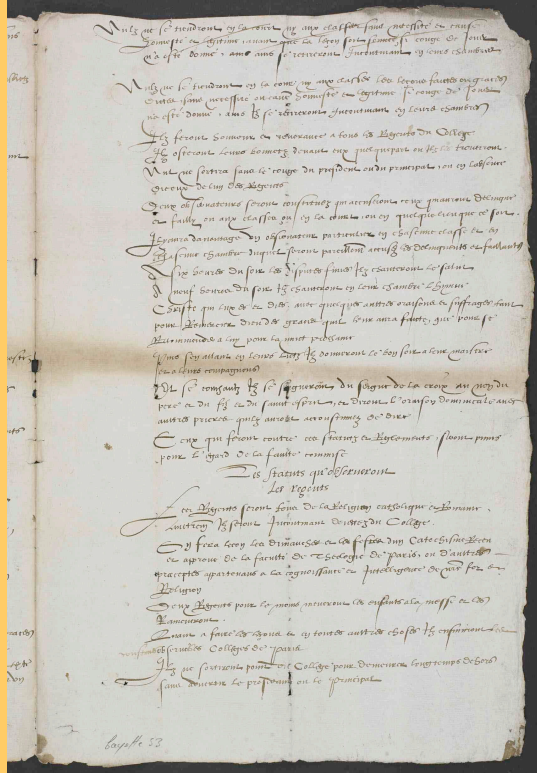 Nulz ne se tiendront en la court ny aux classes sans necessité et cause
honneste et legitime avant que la leçon soit sonnee si conge de jouer
n'a esté donné ains se retireront incontinant en leurs chambres
Nulz ne se tiendront en la court ny aux classes les leçons faittes
sans necessité ou cause honneste et legitime si conge de jouer
ne esté donné ains Ilz se retireront incontinant en leurs chambres
Ilz feront honneur et reverance a tous les Regents du College
Ilz osteront leurs bonnetz devant eux quelquepart ou Ilz les treuveront
Nul ne sortira sans le conge du president ou du principal ou en labsence
diceux de lun des Regents
Deux observateurs seront constitues qui accuseront ceux qui auront
et failly ou aux classes ou en la court ou en quelque lieu que ce soit
Il y aura davantage un observateur particulier en chascune classe et en
chascune chambre duquel seront pareillement accusez les delinquents et faillants
A six heures du soir les disputes finies Ilz chanteront le salut
A neuf heures du soir Ilz chanteront en leur chambre l'hymne
Christe qui lux es et dies, avec quelques autres oraisons et suffrages tant
pour Remercier dieu des graces quil leur aura faitte, que pour se
Recommender a luy pour la nuit prochaine
Puis sen allant en leurs lictz Ilz donneront le bon soir a leur maistre
et a leurs compagnons
Et se couchantz Ilz se signeront du signe de la croix au nom du
pere et du filz et du saint esprit, et diront l'oraison dominicale avec
autres prieres quilz auront accoustumez de dire
Ceux qui feront contre ces statutz et Reglements seront punis
pour l'egard de la faulte commise
Les statuts qu'observeront
Les regents
Les Regents seront tous de la Religion catholique et Romaine
autrement Ilz seront Incontinant du College.
On fera leçon les dimanches et les festes dun Catechisme Receu
et approuvé de la faculté de Theologie de Paris, ou d'autres
preceptes appartenans a la cognoissance et Intelligence de foy et
Religion
Deux Regents pour le moins meneront les enfants a la messe et les
Rameneront
Quant a faire les leçons et en toutes autres choses Ilz ensuivront les
Colleges de Paris
Ilz ne sortiront point du College pour demeurer longtemps dehors
sans advertir le president ou le Principal
33